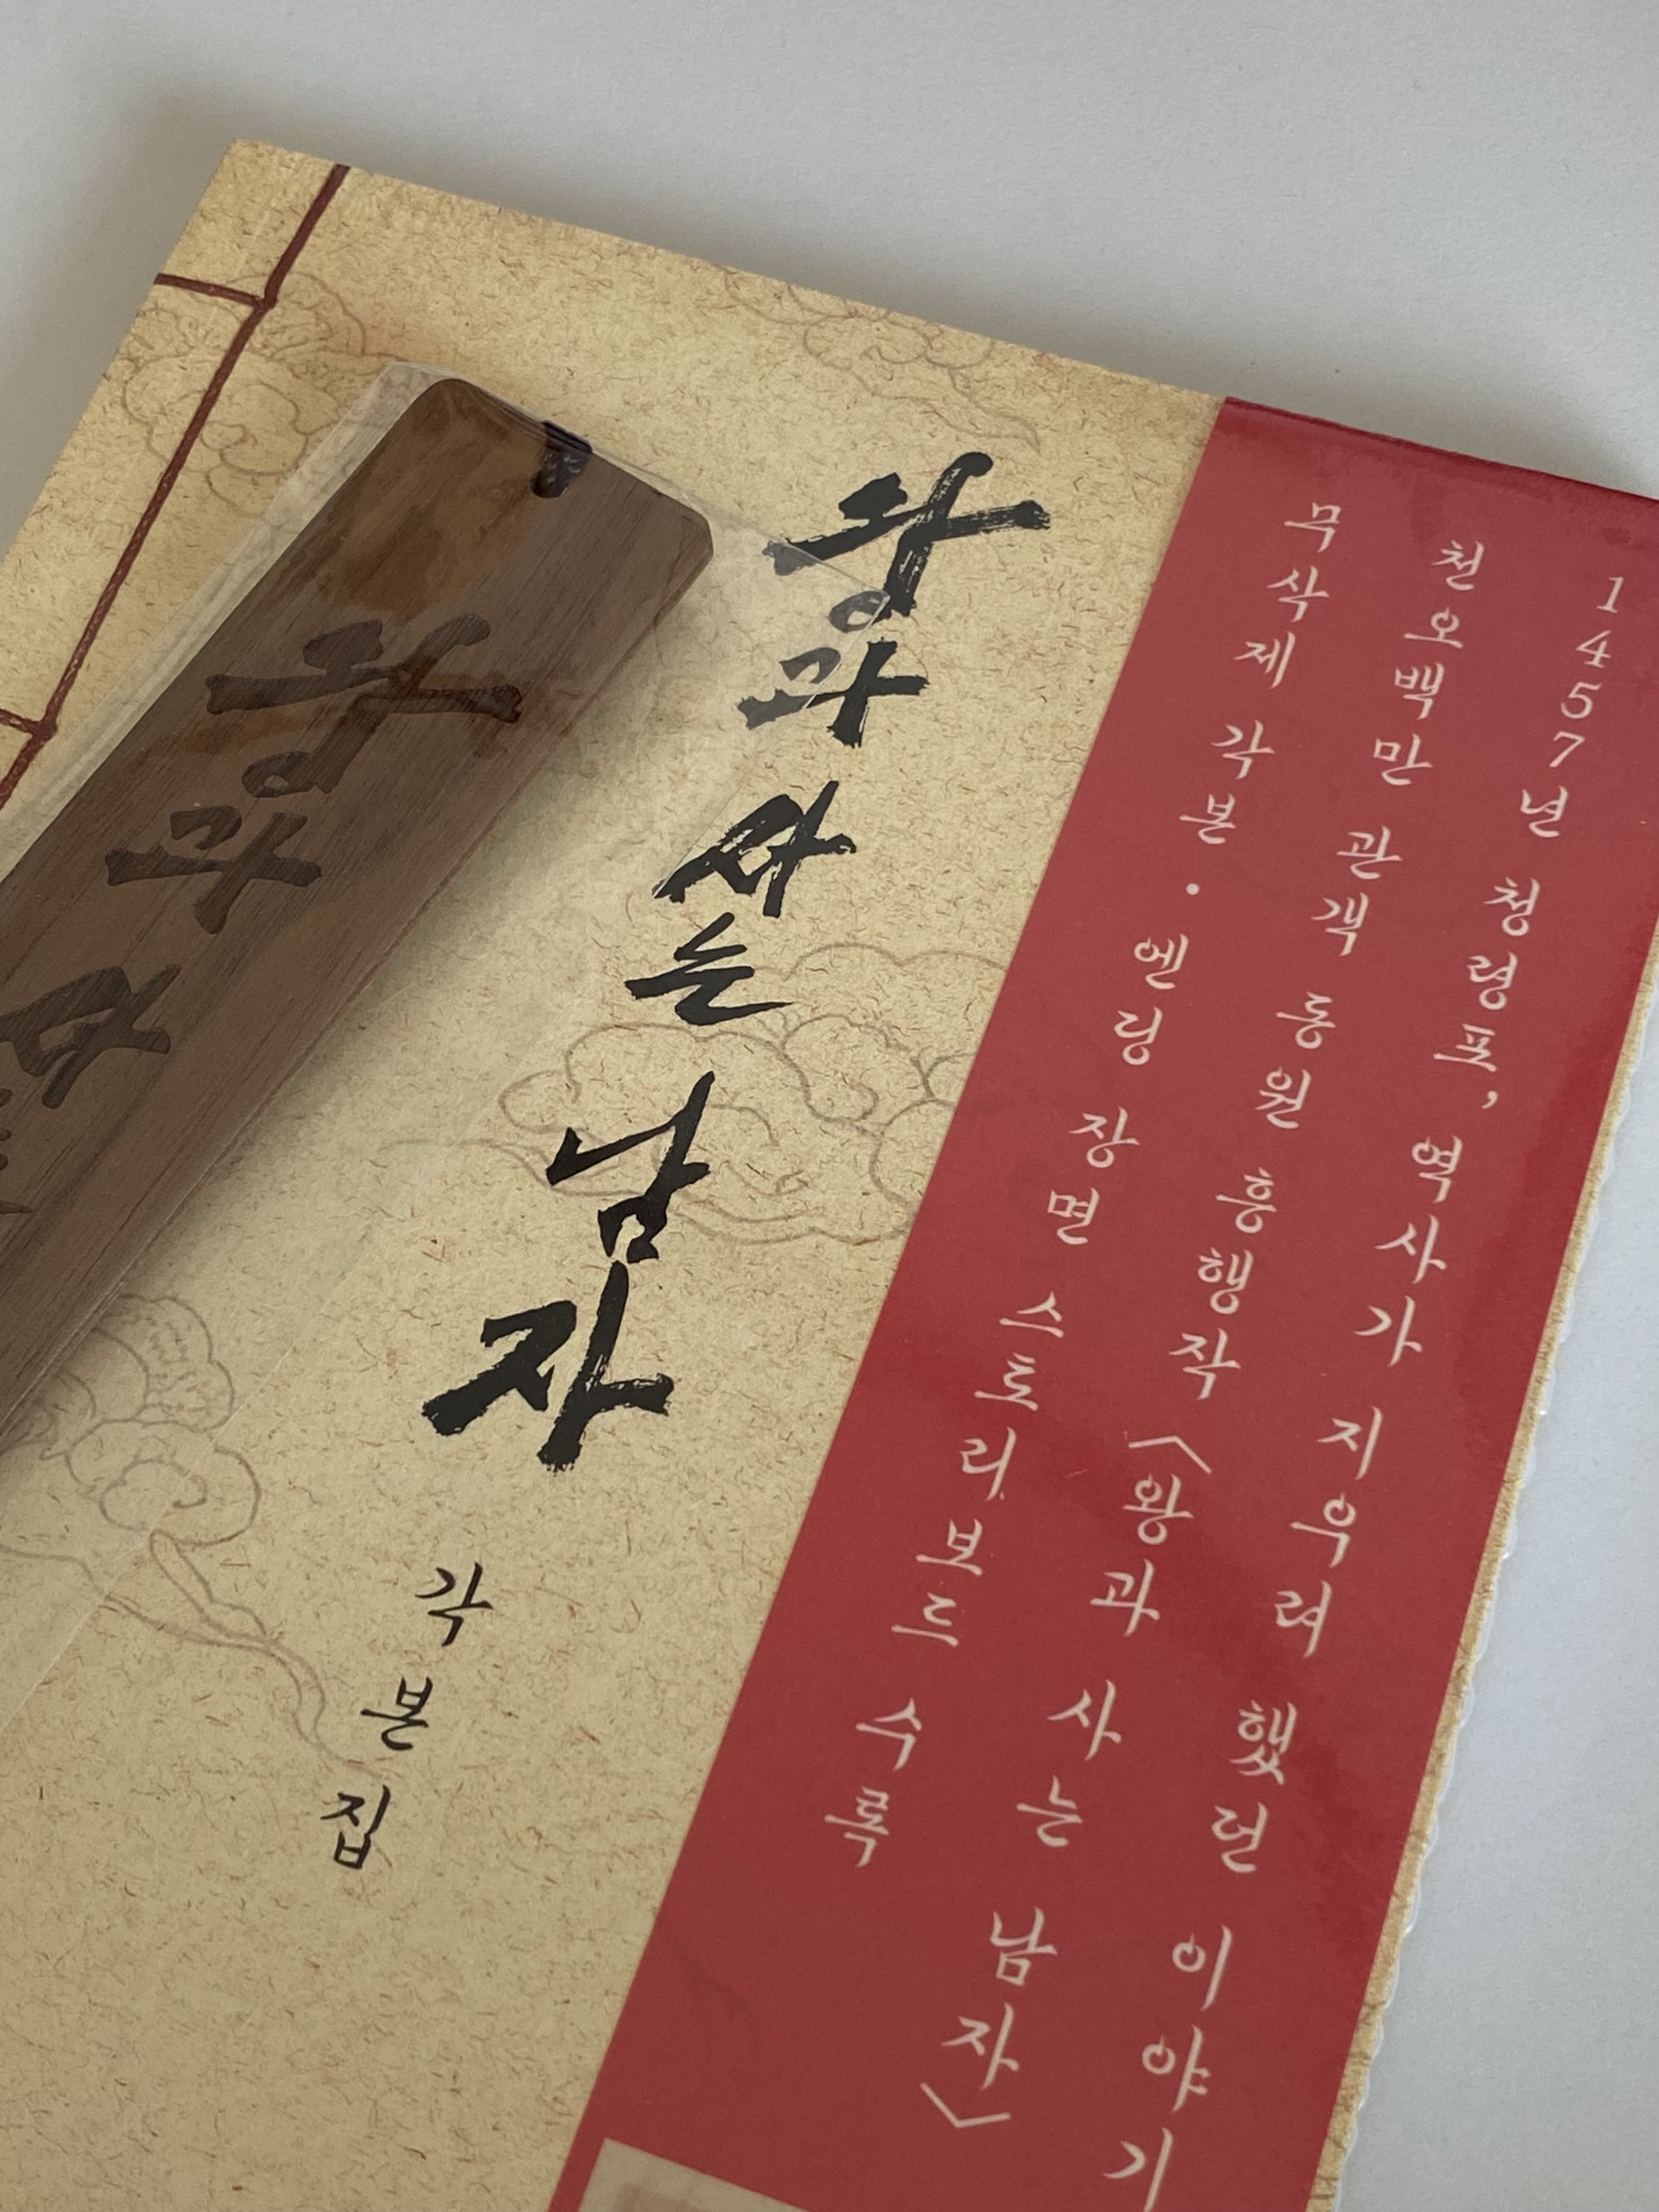 1457년 청령포, 역사가 지우려 했던 이야기
천오백만 관객 동원 흥행작 〈왕과 사는 남자〉
무삭제 각본·엔딩 장면 스토리보드 수록
왕과 사는 남자
각본집
왕과 사